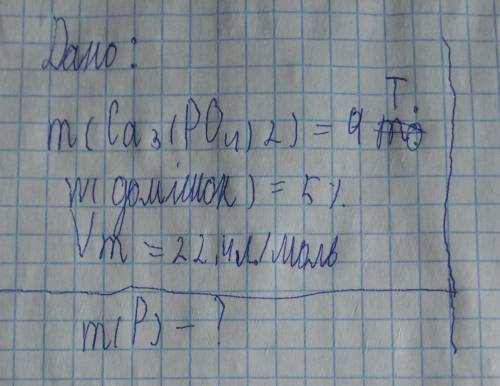 Дано:
т
m(Ca₃(PO₄)2) = 9
m домішок) = 5%
Vm = 22,4л/моль
m(P) - ?